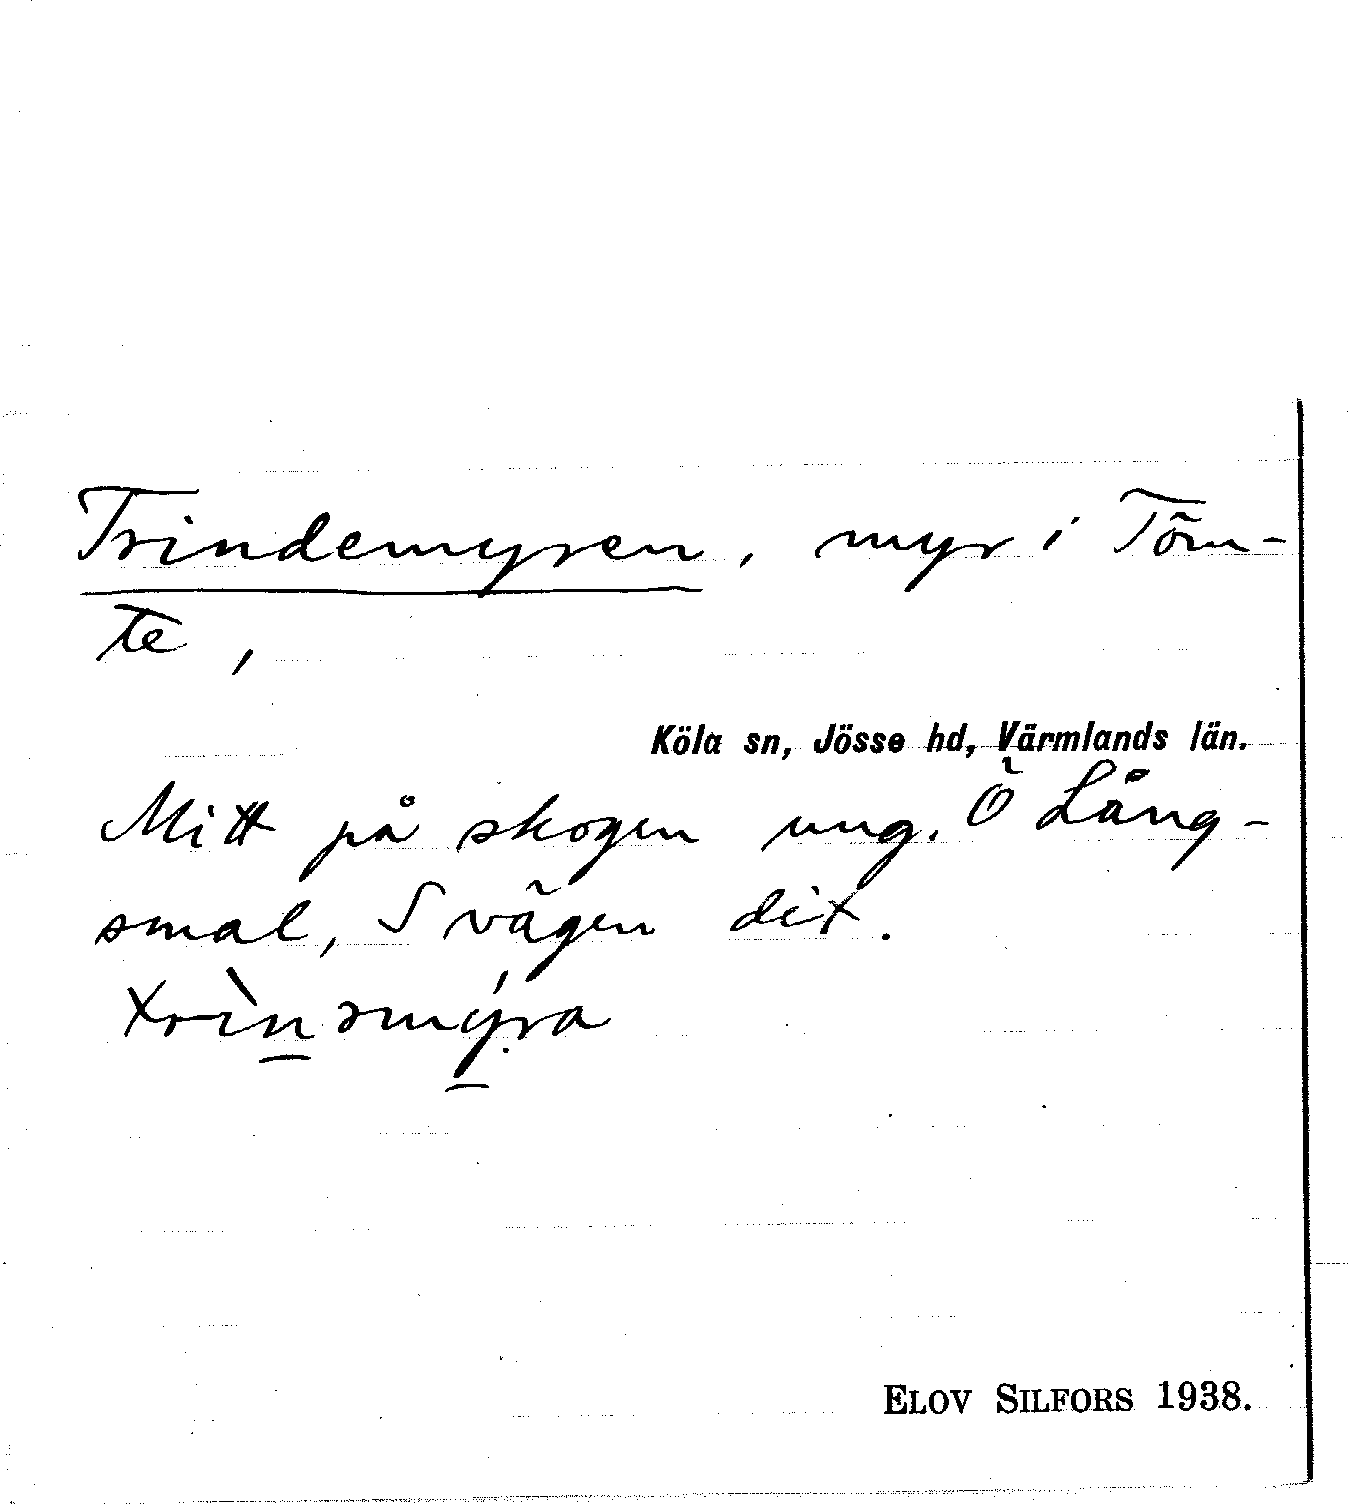 Trindemyren, myr i Töm-
te,
Köla sn, Jösse hd, Värmlands län.
Mitt på skogen ung. Ö Lång-
smal, S vägen dit.
trìn̲əmý̲ra
ELOV SILFORS 1938.